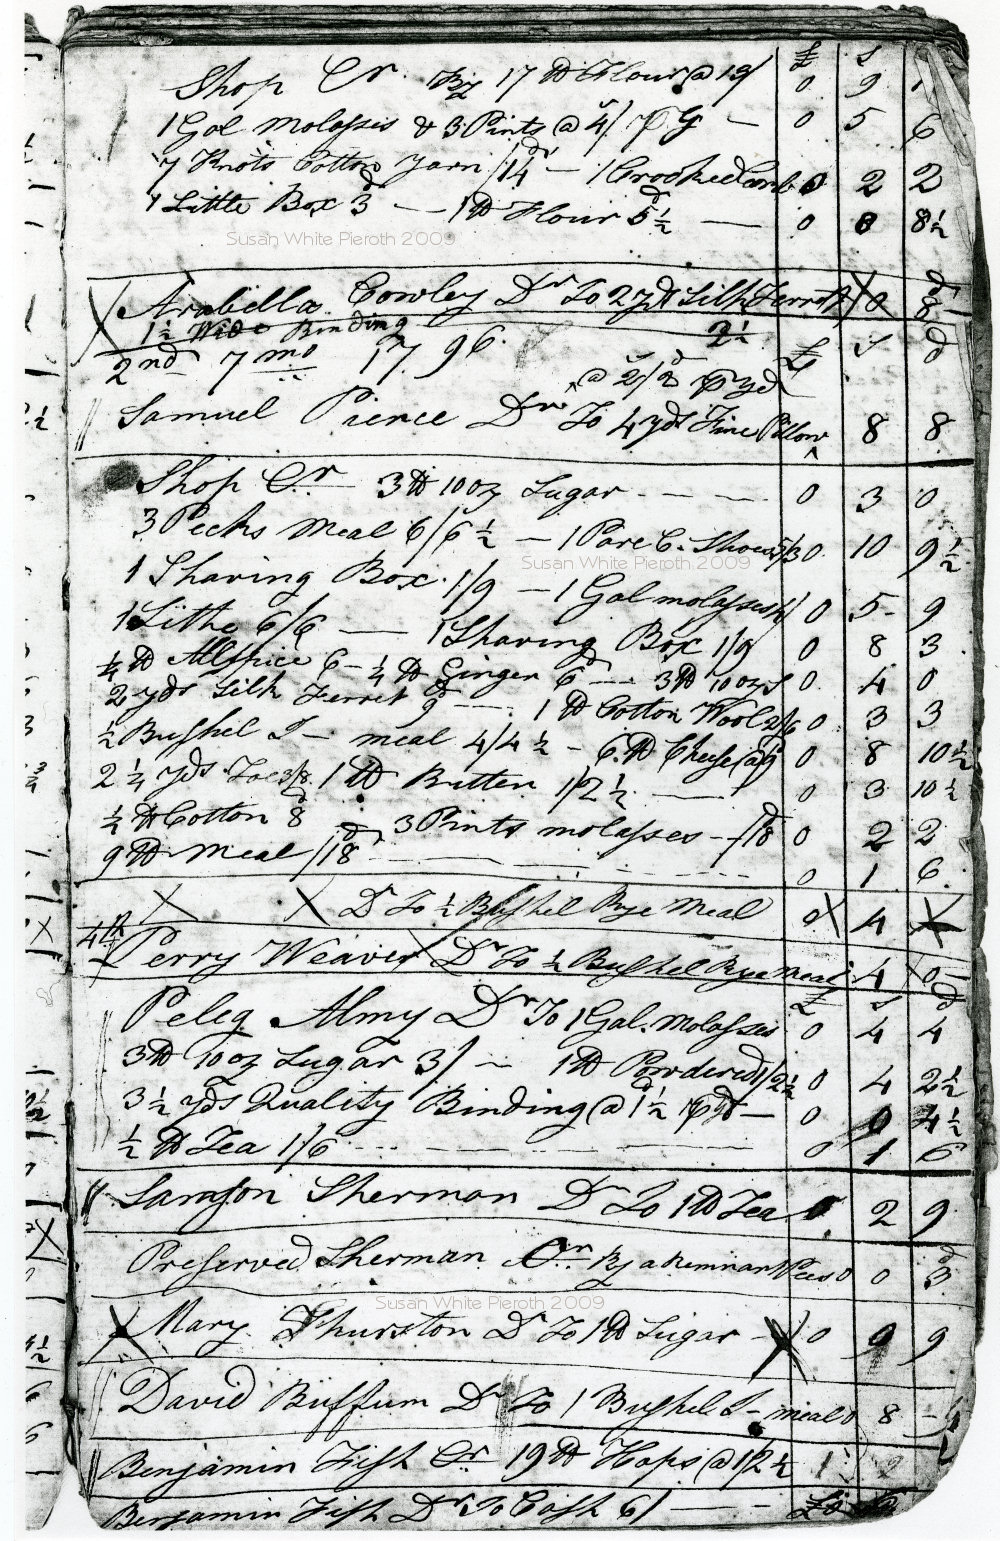 £ s
Shop Cr By 17 ℔ Flour @ 0 9 1
1 Gal Molaſses & 3 Pints @ 4/ ⅌ G — 0 5 6
7 Knots Cotton Yarn /14d — 1 Crooked Comb 0 2 2
1 Little Box 3d — 1 ℔ Flour 5d½ — 0 0 8½
Susan White Pieroth 2009
X Arabella Cowley Dr To 2 yds Silk Ferrett X 0 8d
1½ Wide Binding 2½
2nd 7mo 1796. £ s d
@ 2/2d ⅌ yd
Samuel Pierce Dr To 4 yds Fine Pillow 8 8
Shop Cr 3 ℔ 10 oz Sugar - - - 0 3 0
3 Pecks Meal 6/6½ — 1 Pare C. Shoes 0 10 9½
Susan White Pieroth 2009
1 Shaving Box 1/9 — 1 Gal molaſses 4/ 0 5 9
1 Sithe 6/6 — 1 Shaving Box 1/9 0 8 3
¼ ℔ Allspice 6 - ¼ ℔ Ginger 6d — 3 ℔ 10 oz S 0 4 0
2 yds Silk Ferret 9d — 1 ℔ Cotton Wool 2/6 0 3 3
½ Buſhel I — meal 4/4½ - 6 ℔ Cheese @ 9d 0 8 10½
2¼ yds 1 ℔ Butter 1/2½ — 0 3 10½
½ ℔ Cotton 8d 3 Pints molaſses — /18d 0 2 2
9 ℔ Meal /18d - - - 0 1 6
X X Dr To ½ Buſhel Rye Meal 0 X 4 X
4th Perry Weaver Dr To ½ Buſhel Rye Meal 4 X 0
£ s d
Peleg Almy Dr To 1 Gal. Molaſses 0 4 4
3 ℔ 10 oz Sugar 3/ — 1 ℔ Powdered 1/2½ 0 4 2½
3½ yds Quality Binding @ 1d½ ⅌ yd — 0 0 4½
½ ℔ Tea 1/6 - - - 0 1 6
Samson Sherman Dr To 1 ℔ Tea 0 2 9
Preſerved Sherman Cr By a Remnant 0 0 3d
Susan White Pieroth 2009
X Mary Thurston Dr To 1 ℔ Sugar — X 0 0 9
David Buffum Dr To 1 Buſhel I — meal 0 8 -
Benjamin Fiſh Cr 19 ℔ Hops @ 1/2½ 1 2
Benjamin Fiſh Dr To Caſh 6/ — —